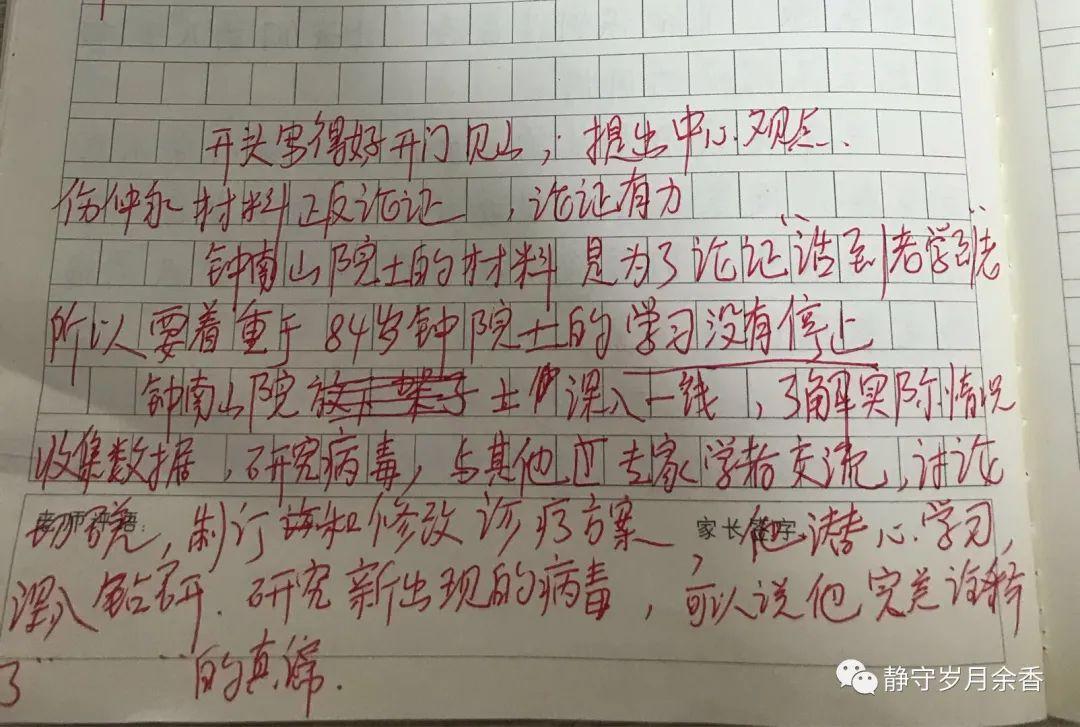 开头写得好开门见山；提出中心观点.
伤仲永材料正反论证，论证有力
钟南山院士的材料是为了论证"活到老学到老"
所以要着重于84岁钟院士的学习没有停止
钟南山院士深入一线，了解实际情况
收集数据，研究病毒，与其他专家学者交流，讨论
老师评语：
制订和修改诊疗方案，他潜心学习，
家长签字
深入钻研.研究新出现的病毒，可以说他完美诠释
了 的真谛.
静守岁月余香